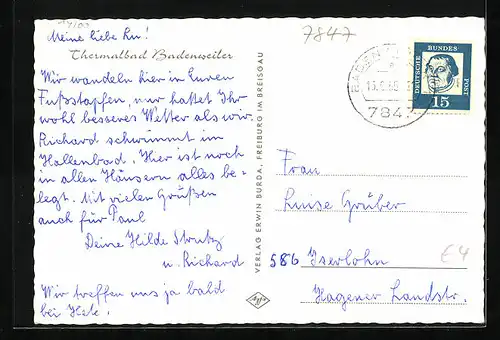 7847
Meine liebe Lu!
Thermalbad Badenweiler
Wir wandeln hier in Euren
Fußstapfen, nur hattet Ihr
wohl besseres Wetter als wir.
Richard schwimmt im
Hallenbad. Hier ist noch
in allen Häusern alles be-
legt. Mit vielen Grüßen
auch für Paul
Deine Hilde
u. Richard
Wir treffen uns ja bald
bei
VERLAG ERWIN BURDA, FREIBURG IM BREISGAU
Agfa
DEUTSCHE BUNDESPOST
15
784
Frau
Luise Gruber
586 Iserlohn
Hagener Landstr.
€4